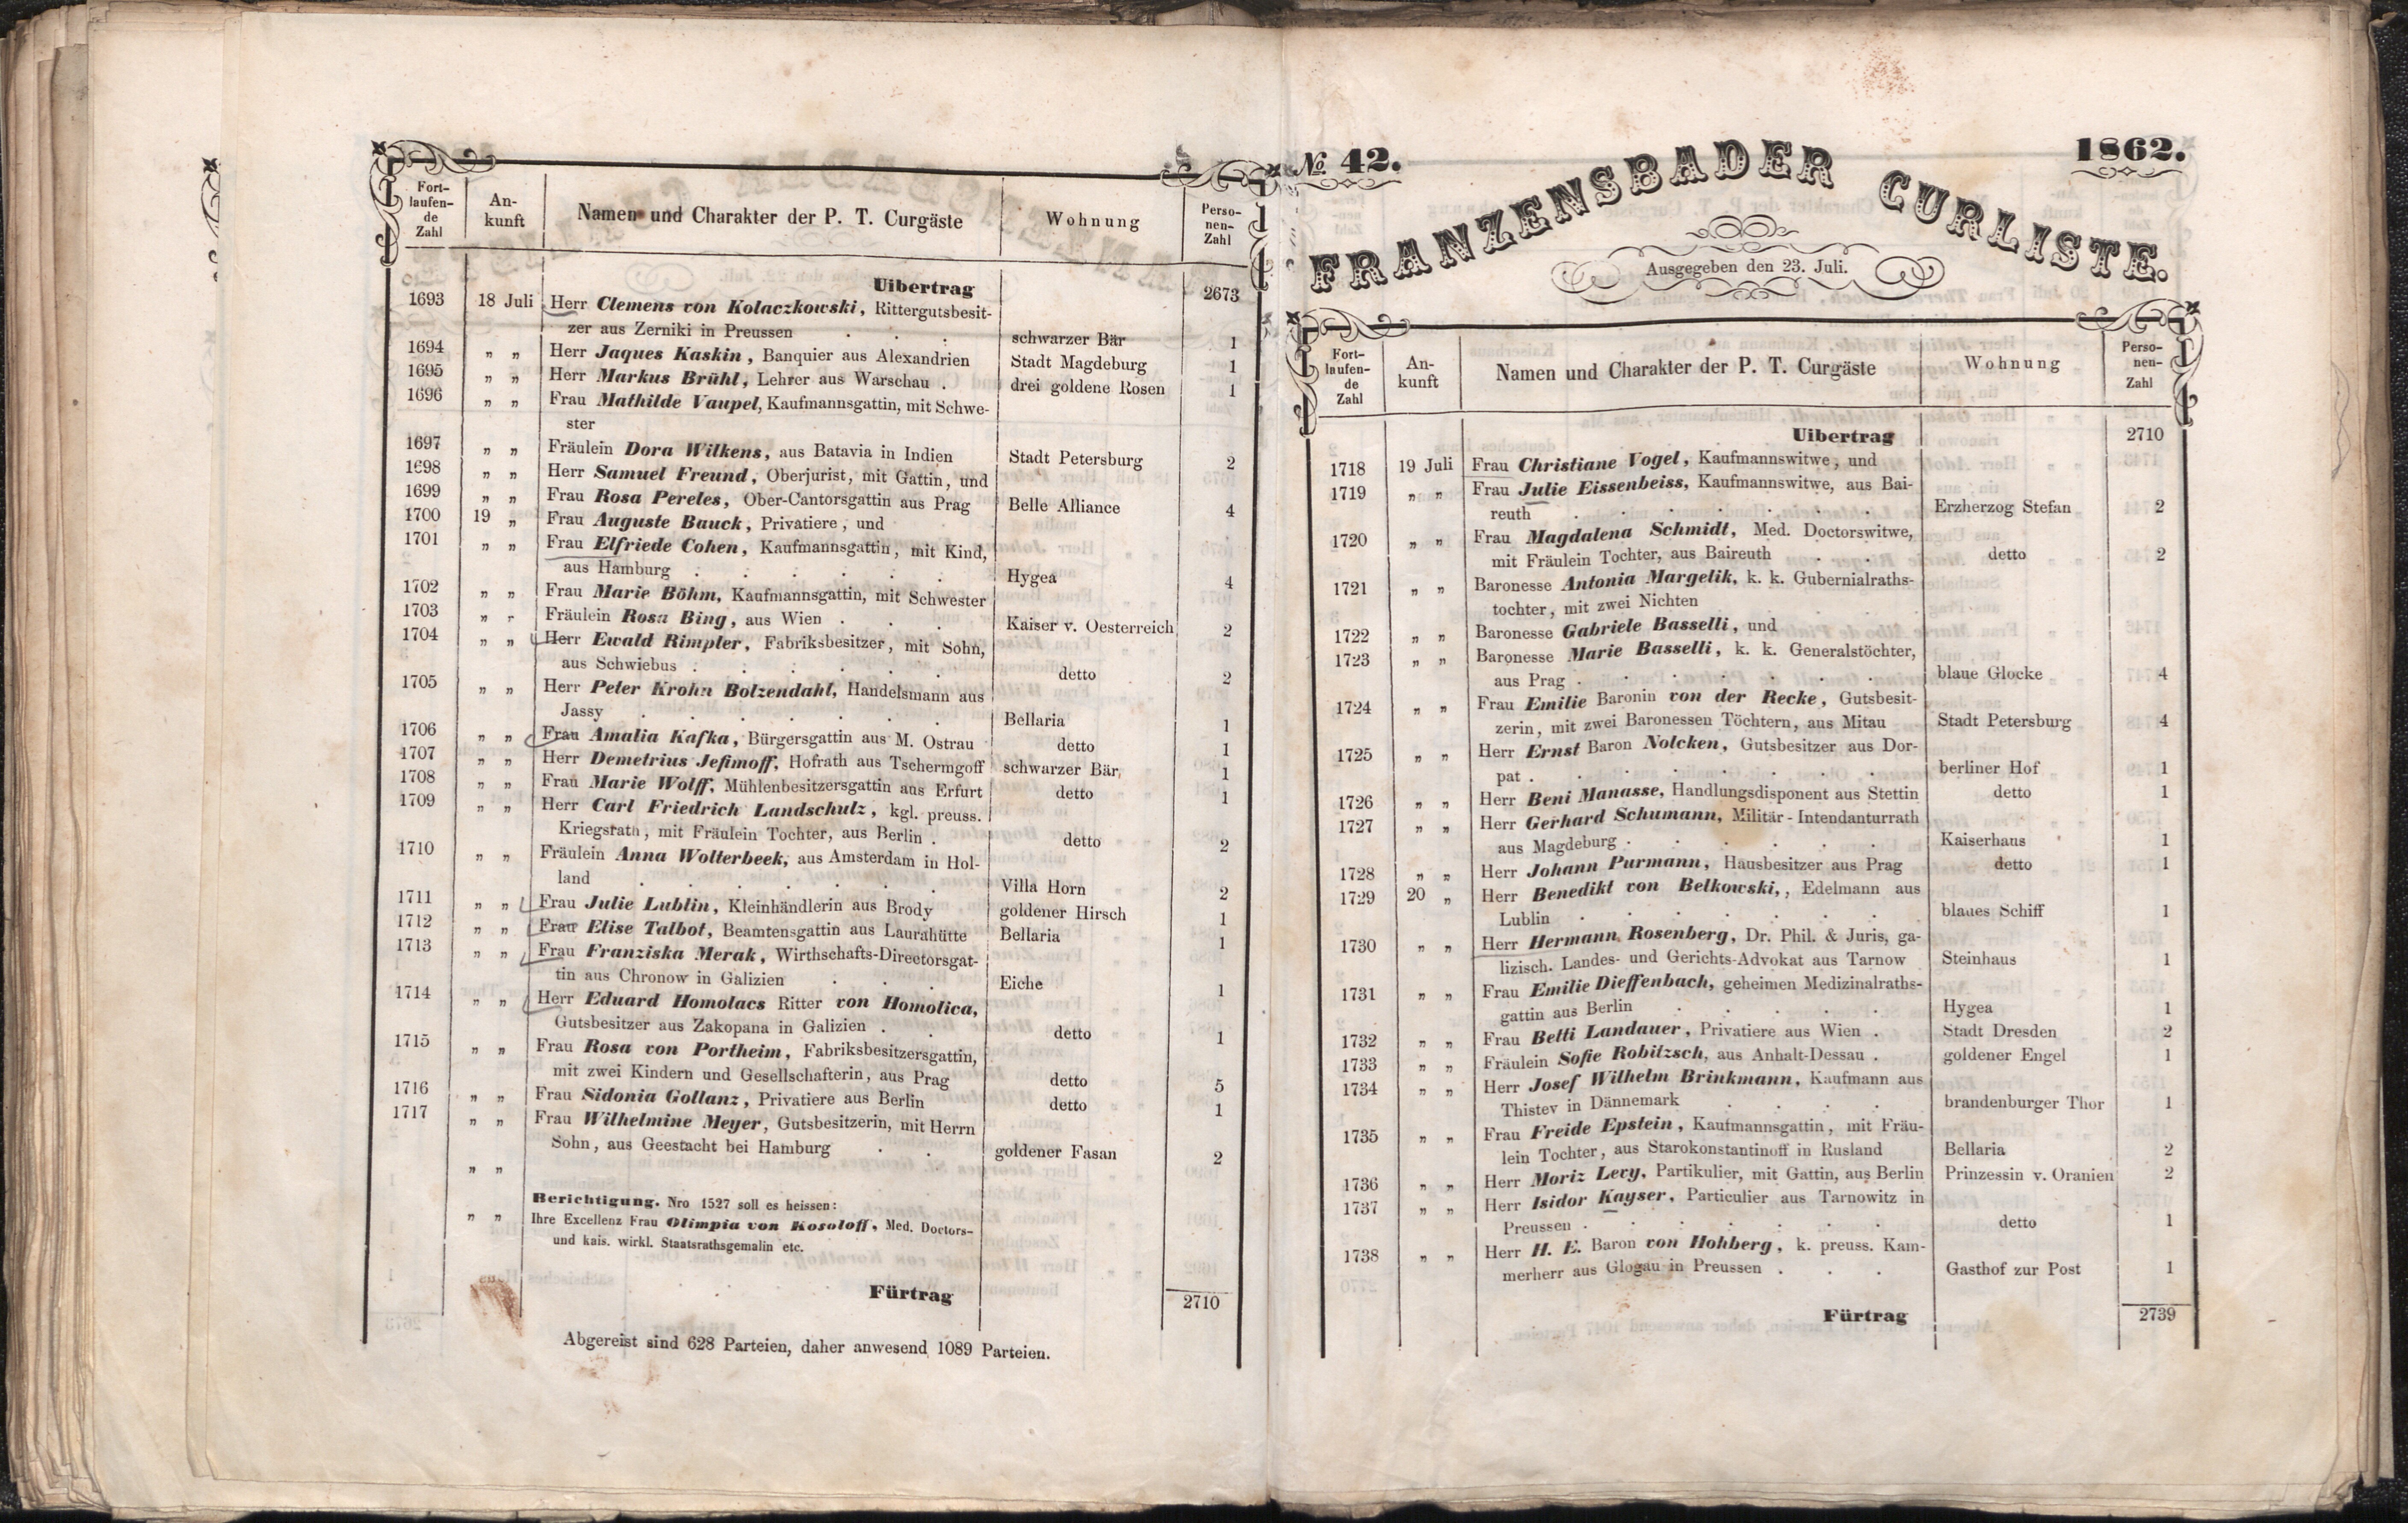 Fort-
laufen-
de
Zahl
An-
kunft
Namen und Charakter der P. T. Curgäste
Wohnung
Perso-
nen-
Zahl
Uibertrag 2673
1693 18 Juli Herr Clemens von Kolaczkowski, Rittergutsbesit-
zer aus Zerniki in Preussen . . . schwarzer Bär 1
1694 „ „ Herr Jaques Kaskin, Banquier aus Alexandrien Stadt Magdeburg 1
1695 „ „ Herr Markus Brühl, Lehrer aus Warschau . drei goldene Rosen 1
1696 „ „ Frau Mathilde Vaupel, Kaufmannsgattin, mit Schwe-
ster
1697 „ „ Fräulein Dora Wilkens, aus Batavia in Indien Stadt Petersburg 2
1698 „ „ Herr Samuel Freund, Oberjurist, mit Gattin, und
1699 „ „ Frau Rosa Pereles, Ober-Cantorsgattin aus Prag Belle Alliance 4
1700 19 „ Frau Auguste Bauck, Privatiere, und
1701 „ „ Frau Elfriede Cohen, Kaufmannsgattin, mit Kind,
aus Hamburg . . . . . . Hygea 4
1702 „ „ Frau Marie Böhm, Kaufmannsgattin, mit Schwester
1703 „ „ Fräulein Rosa Bing, aus Wien . . . Kaiser v. Oesterreich 2
1704 „ „ Herr Ewald Rimpler, Fabriksbesitzer, mit Sohn,
aus Schwiebus . . . . . . detto 2
1705 „ „ Herr Peter Krohn Bolzendahl, Handelsmann aus
Jassy . . . . . . . Bellaria 1
1706 „ „ Frau Amalia Kafka, Bürgersgattin aus M. Ostrau detto 1
1707 „ „ Herr Demetrius Jefimoff, Hofrath aus Tschermgoff schwarzer Bär 1
1708 „ „ Frau Marie Wolff, Mühlenbesitzersgattin aus Erfurt detto 1
1709 „ „ Herr Carl Friedrich Landschulz, kgl. preuss.
Kriegsrath, mit Fräulein Tochter, aus Berlin . detto 2
1710 „ „ Fräulein Anna Wolterbeek, aus Amsterdam in Hol-
land . . . . . . . Villa Horn 2
1711 „ „ Frau Julie Lublin, Kleinhändlerin aus Brody goldener Hirsch 1
1712 „ „ Frau Elise Talbot, Beamtensgattin aus Laurahütte Bellaria 1
1713 „ „ Frau Franziska Merak, Wirthschafts-Directorsgat-
tin aus Chronow in Galizien . . . Eiche 1
1714 „ „ Herr Eduard Homolacs Ritter von Homolica,
Gutsbesitzer aus Zakopana in Galizien . . detto 1
1715 „ „ Frau Rosa von Portheim, Fabriksbesitzersgattin,
mit zwei Kindern und Gesellschafterin, aus Prag detto 5
1716 „ „ Frau Sidonia Gollanz, Privatiere aus Berlin detto 1
1717 „ „ Frau Wilhelmine Meyer, Gutsbesitzerin, mit Herrn
Sohn, aus Geestacht bei Hamburg . . goldener Fasan 2
„ „
Berichtigung. Nro 1527 soll es heissen:
„ „ Ihre Excellenz Frau Olimpia von Kosoloff, Med. Doctors-
und kais. wirkl. Staatsrathsgemalin etc.
Fürtrag 2710
Abgereist sind 628 Parteien, daher anwesend 1089 Parteien.
No 42.
1862.
FRANZENSBADER CURLISTE.
Ausgegeben den 23. Juli.
Fort-
laufen-
de
Zahl
An-
kunft
Namen und Charakter der P. T. Curgäste
Wohnung
Perso-
nen-
Zahl
Uibertrag 2710
1718 19 Juli Frau Christiane Vogel, Kaufmannswitwe, und
1719 „ „ Frau Julie Eissenbeiss, Kaufmannswitwe, aus Bai-
reuth . . . . . . . Erzherzog Stefan 2
1720 „ „ Frau Magdalena Schmidt, Med. Doctorswitwe,
mit Fräulein Tochter, aus Baireuth . . detto 2
1721 „ „ Baronesse Antonia Margelik, k. k. Gubernialraths-
tochter, mit zwei Nichten
1722 „ „ Baronesse Gabriele Basselli, und
1723 „ „ Baronesse Marie Basselli, k. k. Generalstöchter,
aus Prag . . . . . . . blaue Glocke 4
1724 „ „ Frau Emilie Baronin von der Recke, Gutsbesit-
zerin, mit zwei Baronessen Töchtern, aus Mitau Stadt Petersburg 4
1725 „ „ Herr Ernst Baron Nolcken, Gutsbesitzer aus Dor-
pat . . . . . . . . berliner Hof 1
1726 „ „ Herr Beni Manasse, Handlungsdisponent aus Stettin detto 1
1727 „ „ Herr Gerhard Schumann, Militär-Intendanturrath
aus Magdeburg . . . . . . Kaiserhaus 1
1728 „ „ Herr Johann Purmann, Hausbesitzer aus Prag detto 1
1729 20 „ Herr Benedikt von Belkowski,, Edelmann aus
Lublin . . . . . . . blaues Schiff 1
1730 „ „ Herr Hermann Rosenberg, Dr. Phil. & Juris, ga-
lizisch. Landes- und Gerichts-Advokat aus Tarnow Steinhaus 1
1731 „ „ Frau Emilie Dieffenbach, geheimen Medizinalraths-
gattin aus Berlin . . . . . Hygea 1
1732 „ „ Frau Betti Landauer, Privatiere aus Wien . Stadt Dresden 2
1733 „ „ Fräulein Sofie Robitzsch, aus Anhalt-Dessau . goldener Engel 1
1734 „ „ Herr Josef Wilhelm Brinkmann, Kaufmann aus
Thistev in Dännemark . . . . brandenburger Thor 1
1735 „ „ Frau Freide Epstein, Kaufmannsgattin, mit Fräu-
lein Tochter, aus Starokonstantinoff in Rusland Bellaria 2
1736 „ „ Herr Moriz Levy, Partikulier, mit Gattin, aus Berlin Prinzessin v. Oranien 2
1737 „ „ Herr Isidor Kayser, Particulier aus Tarnowitz in
Preussen . . . . . . . detto 1
1738 „ „ Herr H. E. Baron von Hohberg, k. preuss. Kam-
merherr aus Glogau in Preussen . . . Gasthof zur Post 1
Fürtrag 2739